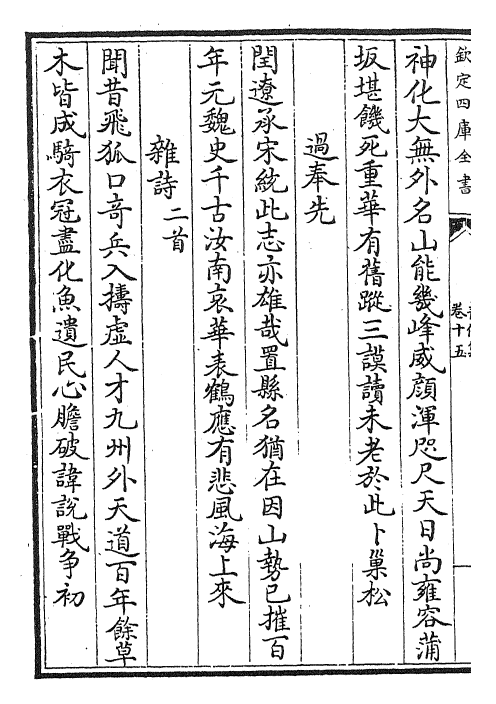 欽定四庫全書
卷十五
神化大無外名山能幾峰威顔渾咫尺天日尚雍容蒲
坂堪饑死重華有舊蹤三謨讀未老於此卜巢松
過奉先
閏遼承宋統此志亦雄哉置縣名猶在因山勢已摧百
年元魏史千古汝南哀華表鶴應有悲風海上來
雜詩二首
聞昔飛狐口竒兵入擣虛人才九州外天道百年餘草
木皆成騎衣冠盡化魚遺民心膽破諱說戰争初